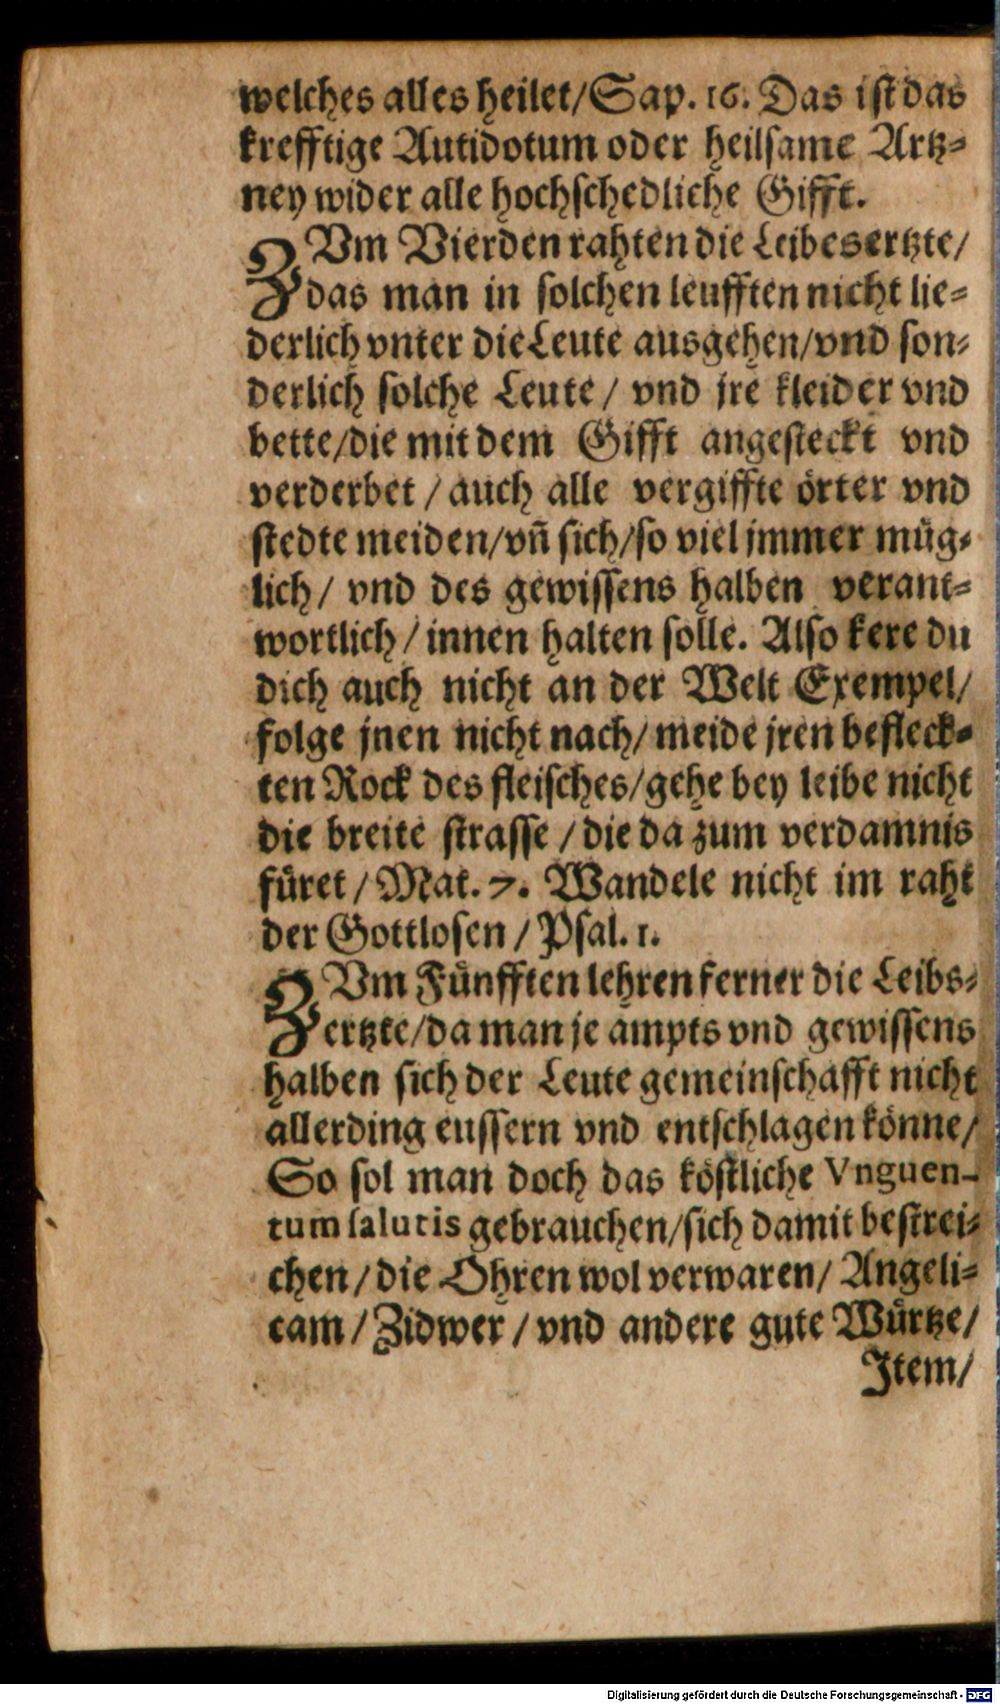 welches alles heilet/Sap. 16. Das ist das
krefftige Autidotum oder heilsame Artz-
ney wider alle hochschedliche Gifft.
ZVm Vierden rahten die Leibesertzte/
das man in solchen leufften nicht lie-
derlich vnter die Leute ausgehen/vnd son-
derlich solche Leute / vnd jre kleider vnd
bette/die mit dem Gifft angesteckt vnd
verderbet / auch alle vergiffte örter vnd
stedte meiden/vñ sich/so viel jmmer müg-
lich/ vnd des gewissens halben verant-
wortlich/ innen halten solle. Also kere du
dich auch nicht an der Welt Exempel/
folge jnen nicht nach/ meide jren befleck-
ten Rock des fleisches/gehe bey leibe nicht
die breite strasse / die da zum verdamnis
füret / Mat. 7. Wandele nicht im raht
der Gottlosen / Psal. 1.
ZVm Fünfften lehren ferner die Leibs-
ertzte/da man je ampts vnd gewissens
halben sich der Leute gemeinschafft nicht
allerding eussern vnd entschlagen könne/
So sol man doch das köstliche Vnguen-
tum salutis gebrauchen/sich damit bestrei-
chen/die Ohren wol verwaren/ Angeli-
cam / Zidwer / vnd andere gute Würtze/
Item/
Digitalisierung gefördert durch die Deutsche Forschungsgemeinschaft - DFG